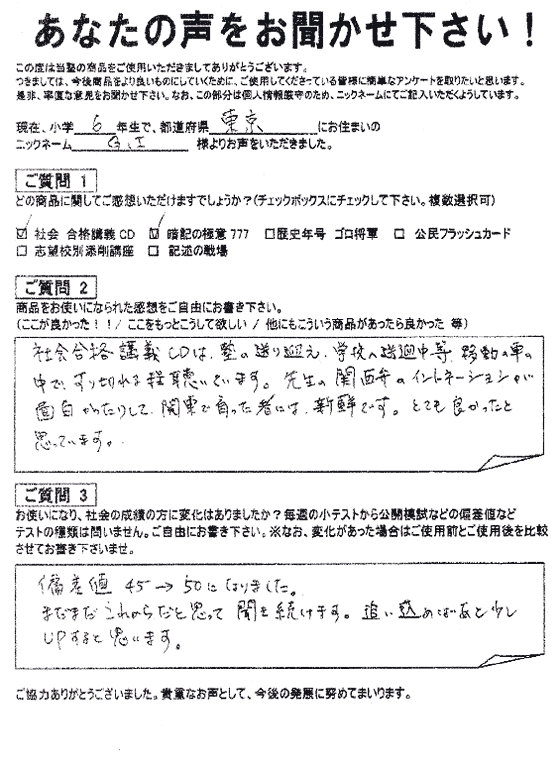 あなたの声をお聞かせ下さい！
この度は当塾の商品をご使用いただきましてありがとうございます。
つきましては、今後商品をより良いものにしていくために、ご使用してくださっている皆様に簡単なアンケートを取りたいと思います。
是非、率直な意見をお聞かせ下さい。なお、この部分は個人情報厳守のため、ニックネームにてご記入いただくようしています。
現在、小学 6 年生で、都道府県 東京 にお住まいの
ニックネーム G.I 様よりお声をいただきました。
ご質問 1
どの商品に関してご感想いただけますでしょうか？（チェックボックスにチェックして下さい。複数選択可）
☑ 社会 合格講義CD ☑ 暗記の極意777 □歴史年号 ゴロ将軍 □ 公民フラッシュカード
□ 志望校別添削講座 □ 記述の戦場
ご質問 2
商品をお使いになられた感想をご自由にお書き下さい。
（ここが良かった！！/ ここをもっとこうして欲しい / 他にもこういう商品があったら良かった 等）
社会合格講義CDは、塾の送り迎え、学校へ送迎中等、移動の車の
中で、すり切れる程聴いています。先生の関西弁のイントネーションが
面白かったりして、関東で育った者には、新鮮です。とても良かったと
思っています。
ご質問 3
お使いになり、社会の成績の方に変化はありましたか？毎週の小テストから公開模試などの偏差値など
テストの種類は問いません。ご自由にお書き下さい。※なお、変化があった場合はご使用前とご使用後を比較
させてお書き下さいませ。
偏差値 45→50になりました。
まだまだこれからだと思って聞き続けます。追い込めばあと少し
UPすると思います。
ご協力ありがとうございました。貴重なお声として、今後の発展に努めてまいります。